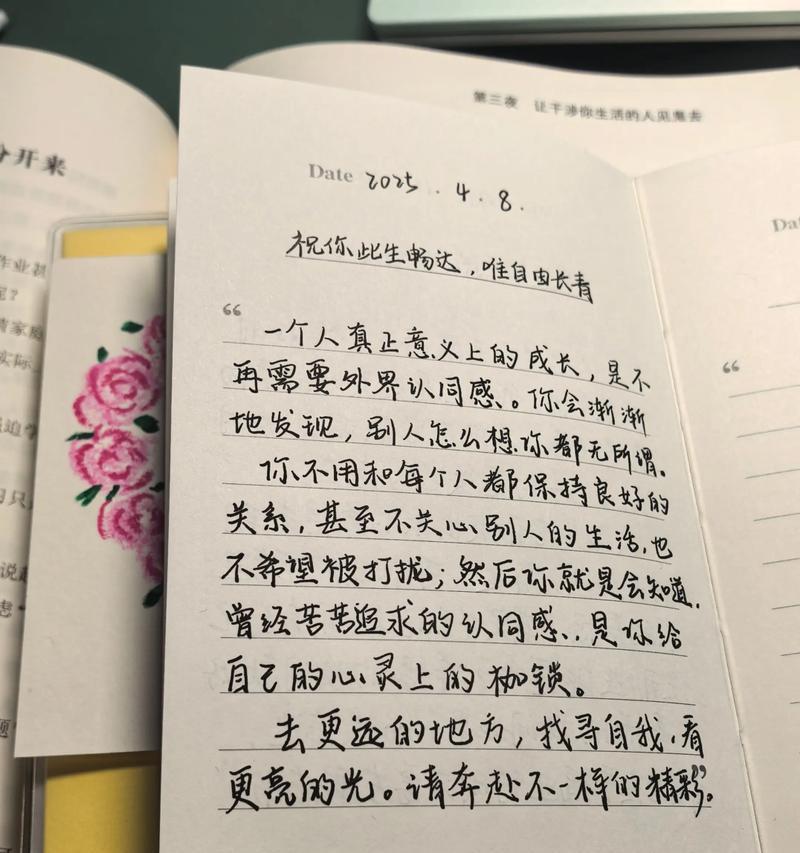 第三夜 让干涉你生活的人见鬼去
分开来
作业甚
呢?
情家庭
实际
强迫学
习只
说起
虑
题
Date 2025.4.8.
祝你此生畅达，唯自由长青
“一个人真正意义上的成长，是不
再需要外界认同感。你会渐渐
地发现，别人怎么想你都无所谓。
你不用和每个人都保持良好的
关系，甚至不关心别人的生活，也
不希望被打扰；然后你就是会知道，
曾经苦苦追求的认同感，是你给
自己的心灵上的枷锁。
去更远的地方，找寻自我，看
更亮的光。请奔赴不一样的精彩”。
Dat
“